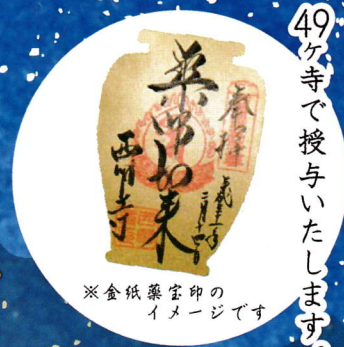 49ヶ寺で授与いたします。
奉拝
薬師如来
※金紙薬宝印の
イメージです